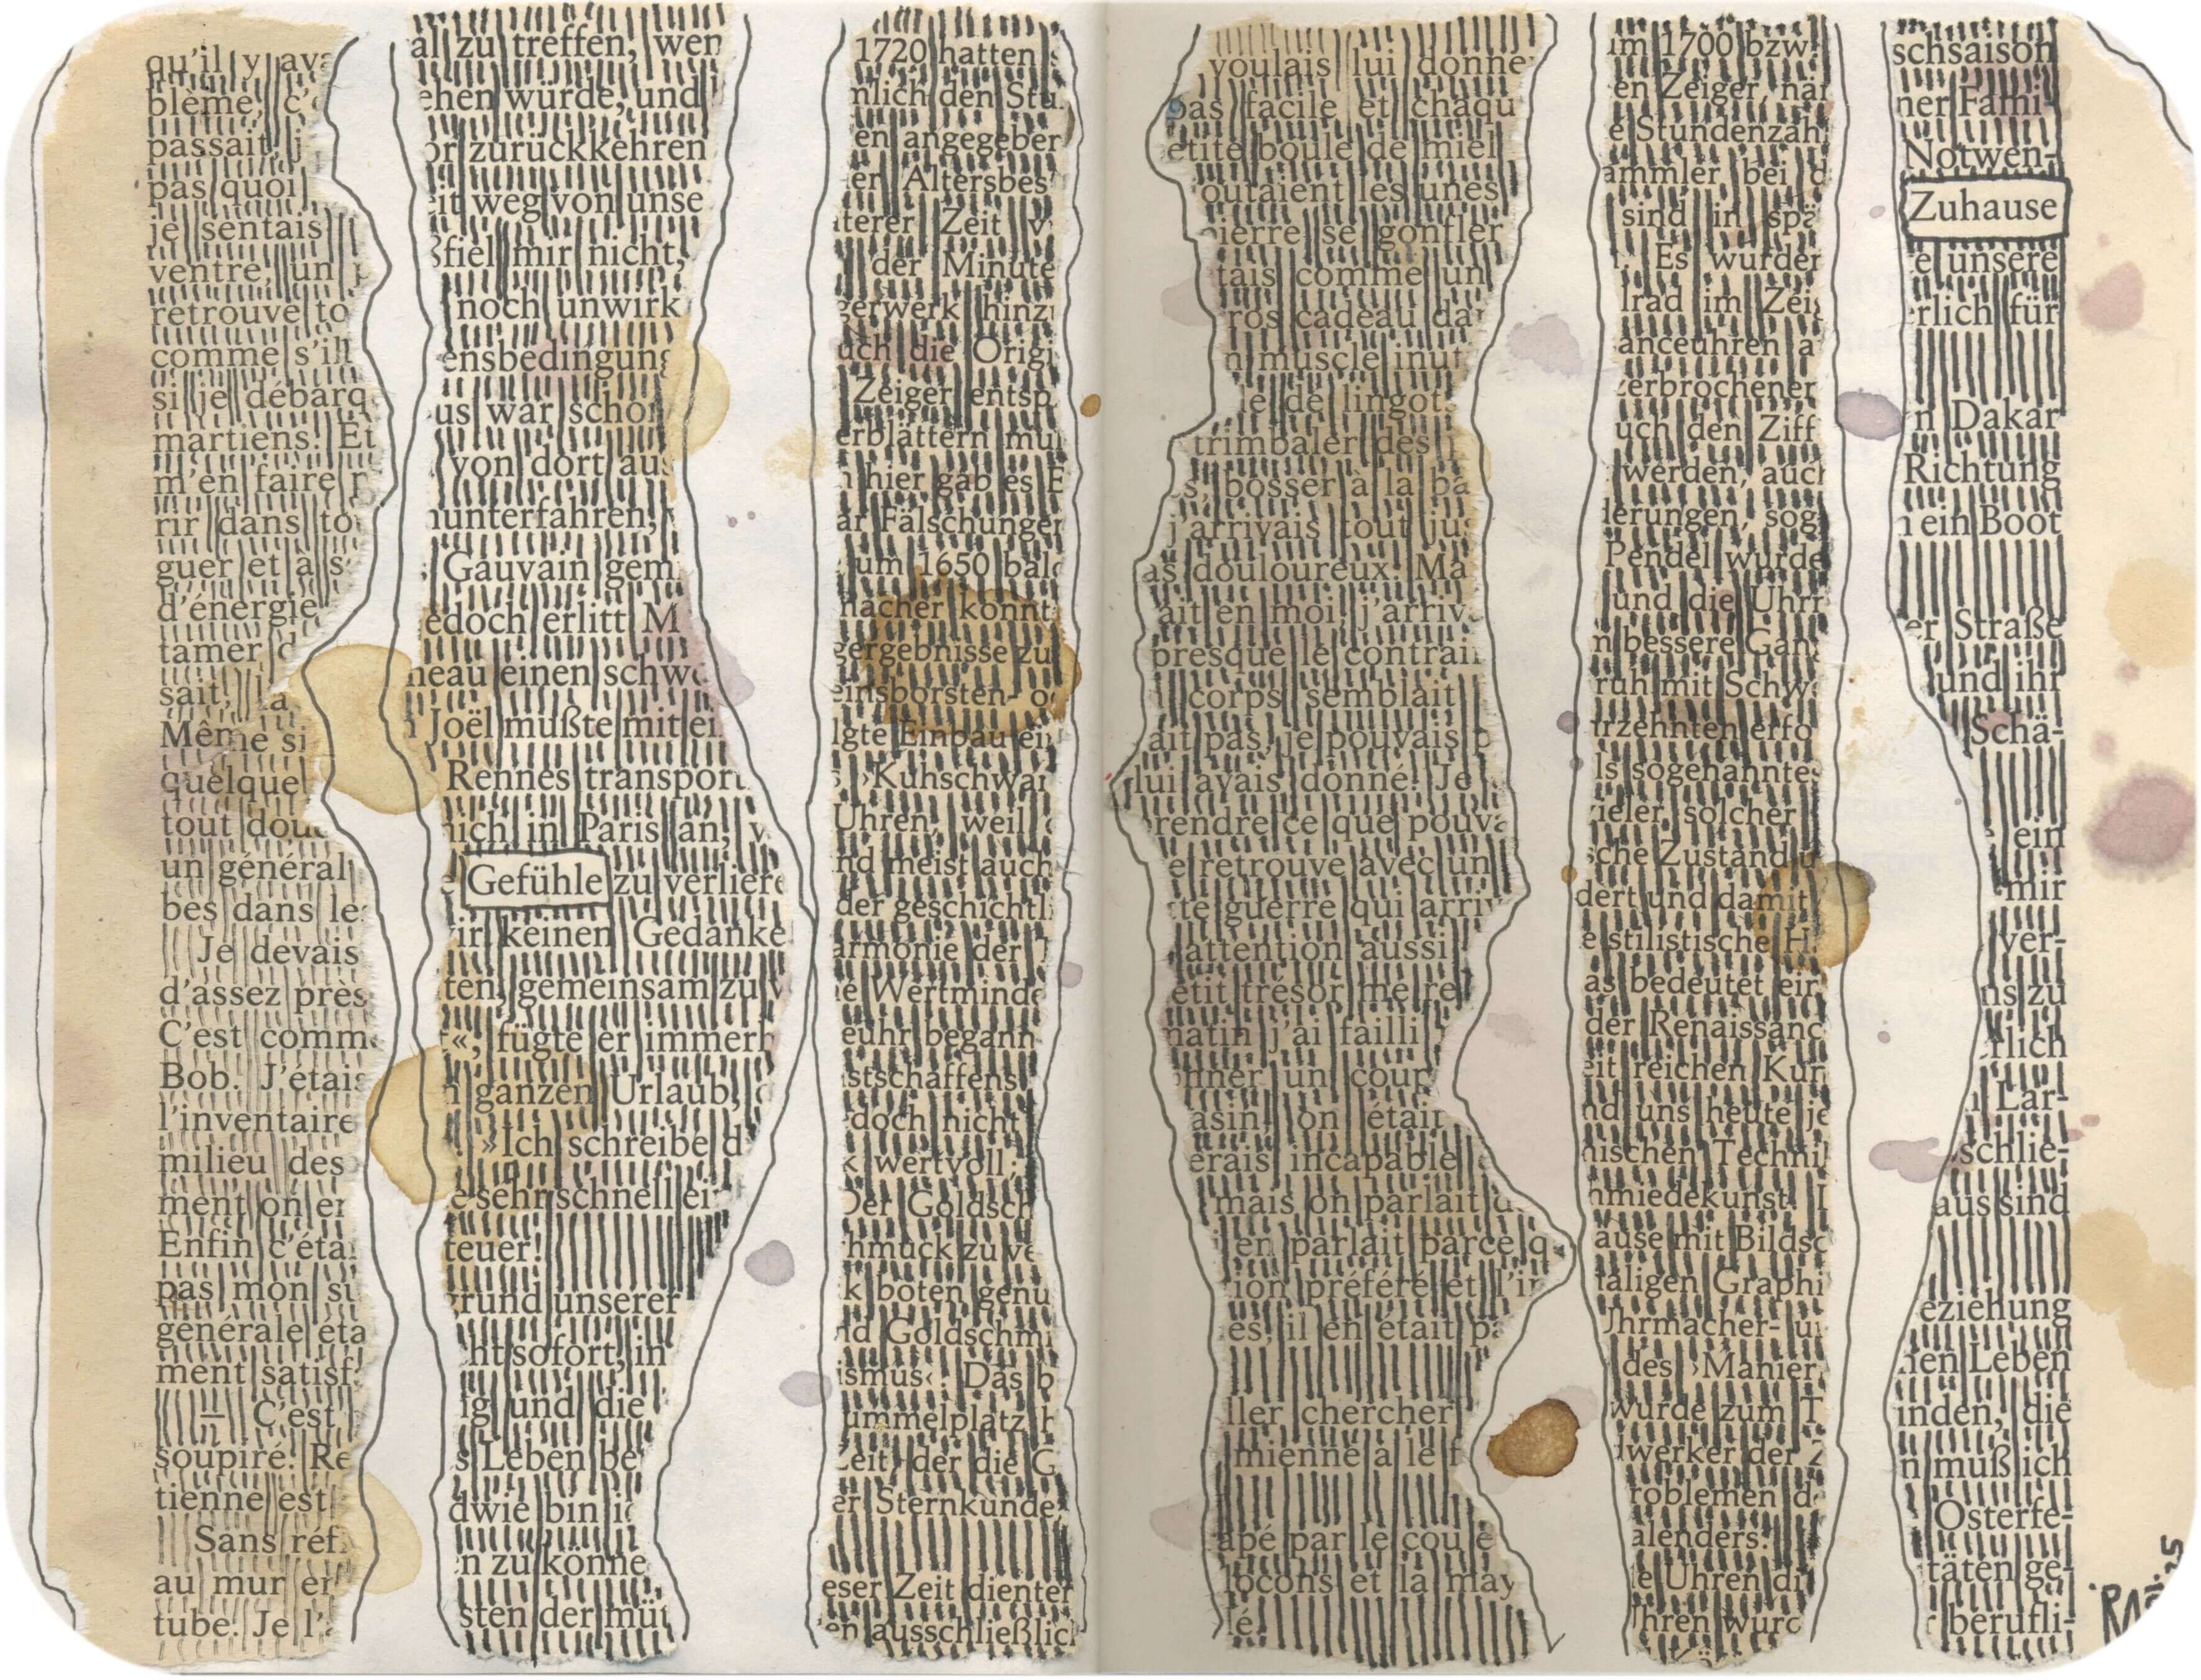 qu'il y ava
blème, c'
passait, j
pas quoi
je sentais
ventre, un
retrouve to
comme s'il
si je débarq
martiens. Et
m'en faire
rir dans to
guer et à s
d'énergie
tamer d
sait, la
Même si
quelque
tout dou
un général
bes dans le
Je devais
d'assez près
C'est comm
Bob. J'étais
l'inventaire
milieu des
ment on er
Enfin c'éta
pas mon su
générale éta
ment satisf
— C'est
soupiré. Re
tienne est
Sans réf
au mur er
tube. Je l'
al zu treffen, wen
ehen würde, und
or zurückkehren
it weg von unse
ßfiel mir nicht,
noch unwirk
ensbedingung
us war schon
von dort aus
hunterfahren,
Gauvain gem
edoch erlitt M
neau einen schwe
Joël mußte mit ei
Rennes transport
nich in Paris an, w
Gefühle zu verliere
ir keinen Gedanke
ten, gemeinsam zu v
«, fügte er immerh
n ganzen Urlaub,
»Ich schreibe d
e sehr schnell ein
teuer!
grund unserer
ht sofort, in
ig und die
s Leben be
dwie bin ic
n zu könne
sten der müt
1720 hatten s
nlich den Stu
en angegeben
er Altersbes
äterer Zeit v
der Minute
gerwerk hinz
uch die Origi
Zeiger entsp
erblättern mu
n hier gab es E
ar Fälschunger
um 1650 bald
nacher konnt
gergebnisse zu
einsborsten- o
lgte Einbau ein
›Kuhschwan
Uhren, weil
nd meist auch
der geschichtli
armonie der
e Wertminde
euhr begann
stschaffens
doch nicht
k wertvoll;
Der Goldsch
hmuck zu ve
k boten genu
nd Goldschmi
ismus‹. Das b
ummelplatz h
Zeit, der die G
er Sternkunde,
eser Zeit dienter
en ausschließlich
voulais lui donne
pas facile et chaqu
etite boule de miel
outaient les unes
ierre se gonfler
tais comme un
ros cadeau da
n muscle inut
le de lingot
trimbaler des
s, bosser à la ba
j'arrivais tout jus
as douloureux. Ma
ait en moi, j'arriv
presque le contrair
corps semblait
ait pas, je pouvais
lui avais donné. Je
rendre ce que pouva
e retrouve avec un
te guerre qui arriv
attention aussi
etit trésor me re
matin j'ai failli
nner un coup
asin, on était
erais incapable
mais on parlait d
en parlait parce q
ion préféré et l'in
es, il en était pa
ller chercher
mienne a le f
apé par le cou e
ocons et la may
é.
um 1700 bzw.
en Zeiger, när
e Stundenzah
ammler bei d
sind in spä
Es wurden
lrad im Zeig
anceuhren a
zerbrochener
uch den Ziff
werden, auch
derungen, sog
Pendel wurde
und die Uhr
n bessere Gan
ruh mit Schw
hrzehnten erfo
ls sogenannte
vieler solcher
sche Zustand
dert und damit
e stilistische H
as bedeutet ein
der Renaissanc
eit reichen Kun
nd uns heute je
nischen Techni
hmiedekunst.
äuse mit Bildsc
naligen Graphi
Uhrmacher- u
des ›Manier
wurde zum T
dwerker der Z
roblemen d
alenders.
e Uhren di
hren wurd
schsaison
ner Fami-
Notwen-
Zuhause
e unsere
erlich für
n Dakar
Richtung
n ein Boot
er Straße
und ihr
Schä-
ein
mir
ver-
ns zu
rlich
Lar-
schlie-
aus sind
eziehung
nen Leben
inden, die
n muß ich
Osterfe-
täten ge-
berufli-